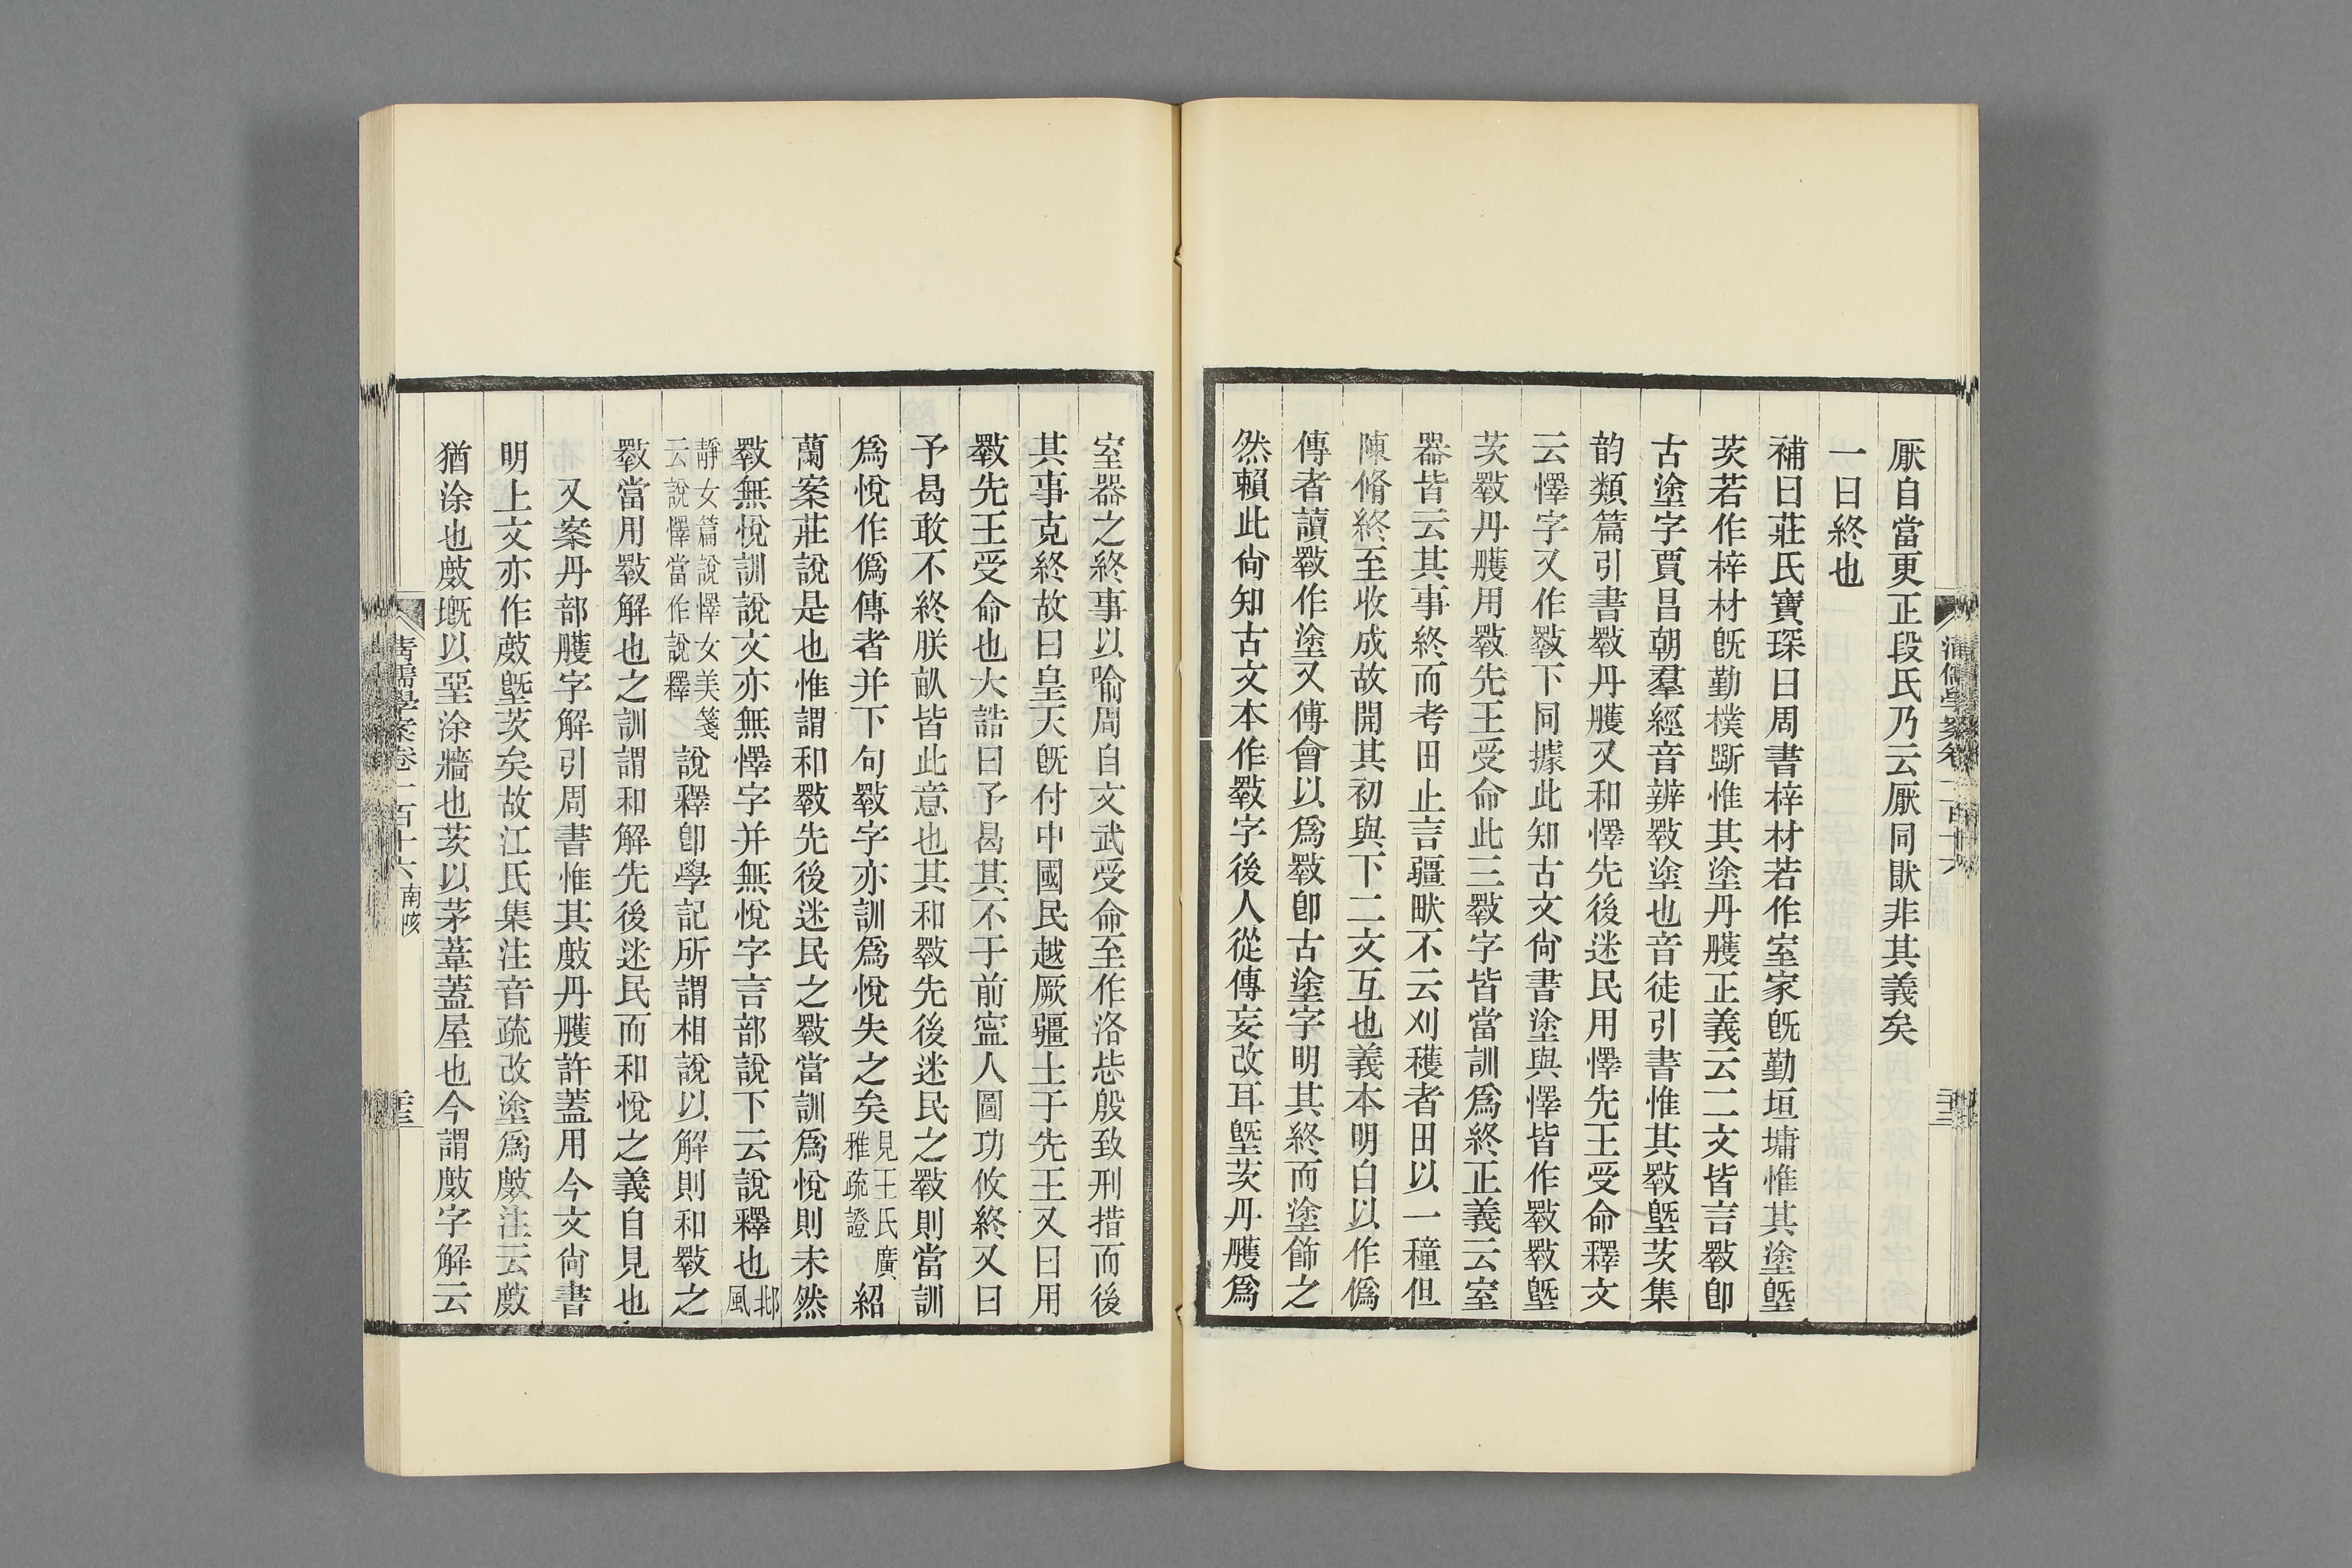 厭自當更正段氏乃云厭同猒非其義矣
一曰終也
補曰莊氏寶琛曰周書梓材若作室家旣勤垣墉惟其塗墍
茨若作梓材旣勤樸斲惟其塗丹雘正義云二文皆言斁卽
古塗字賈昌朝羣經音辨斁塗也音徒引書惟其斁墍茨集
韵類篇引書斁丹雘又和懌先後迷民用懌先王受命釋文
云懌字又作斁下同據此知古文尙書塗與懌皆作斁斁墍
茨斁丹雘用斁先王受命此三斁字皆當訓爲終正義云室
器皆云其事終而考田止言疆畎不云刈穫者田以一種但
陳脩終至收成故開其初與下二文互也義本明白以作僞
傳者讀斁作塗又傳會以爲斁卽古塗字明其終而塗飾之
然賴此尙知古文本作斁字後人從傳妄改耳墍茨丹雘爲
清儒學案卷一百十六
室器之終事以喻周自文武受命至作洛毖殷致刑措而後
其事克終故曰皇天旣付中國民越厥疆土于先王又曰用
斁先王受命也大誥曰予曷其不于前寍人圖功攸終又曰
予曷敢不終朕畝皆此意也其和斁先後迷民之斁則當訓
爲悅作僞傳者并下句斁字亦訓爲悅失之矣見王氏廣雅疏證紹
蘭案莊說是也惟謂和斁先後迷民之斁當訓爲悅則未然
斁無悅訓說文亦無懌字并無悅字言部說下云說釋也邶風
靜女篇說懌女美箋云說懌當作說釋說釋卽學記所謂相說以解則和斁之
斁當用斁解也之訓謂和解先後迷民而和悅之義自見也
又案丹部雘字解引周書惟其𢾖丹雘許蓋用今文尙書
明上文亦作𢾖墍茨矣故江氏集注音疏改塗爲𢾖注云𢾖
猶涂也𢾖墍以堊涂牆也茨以茅葦蓋屋也今謂𢾖字解云
清儒學案卷一百十六 南陔